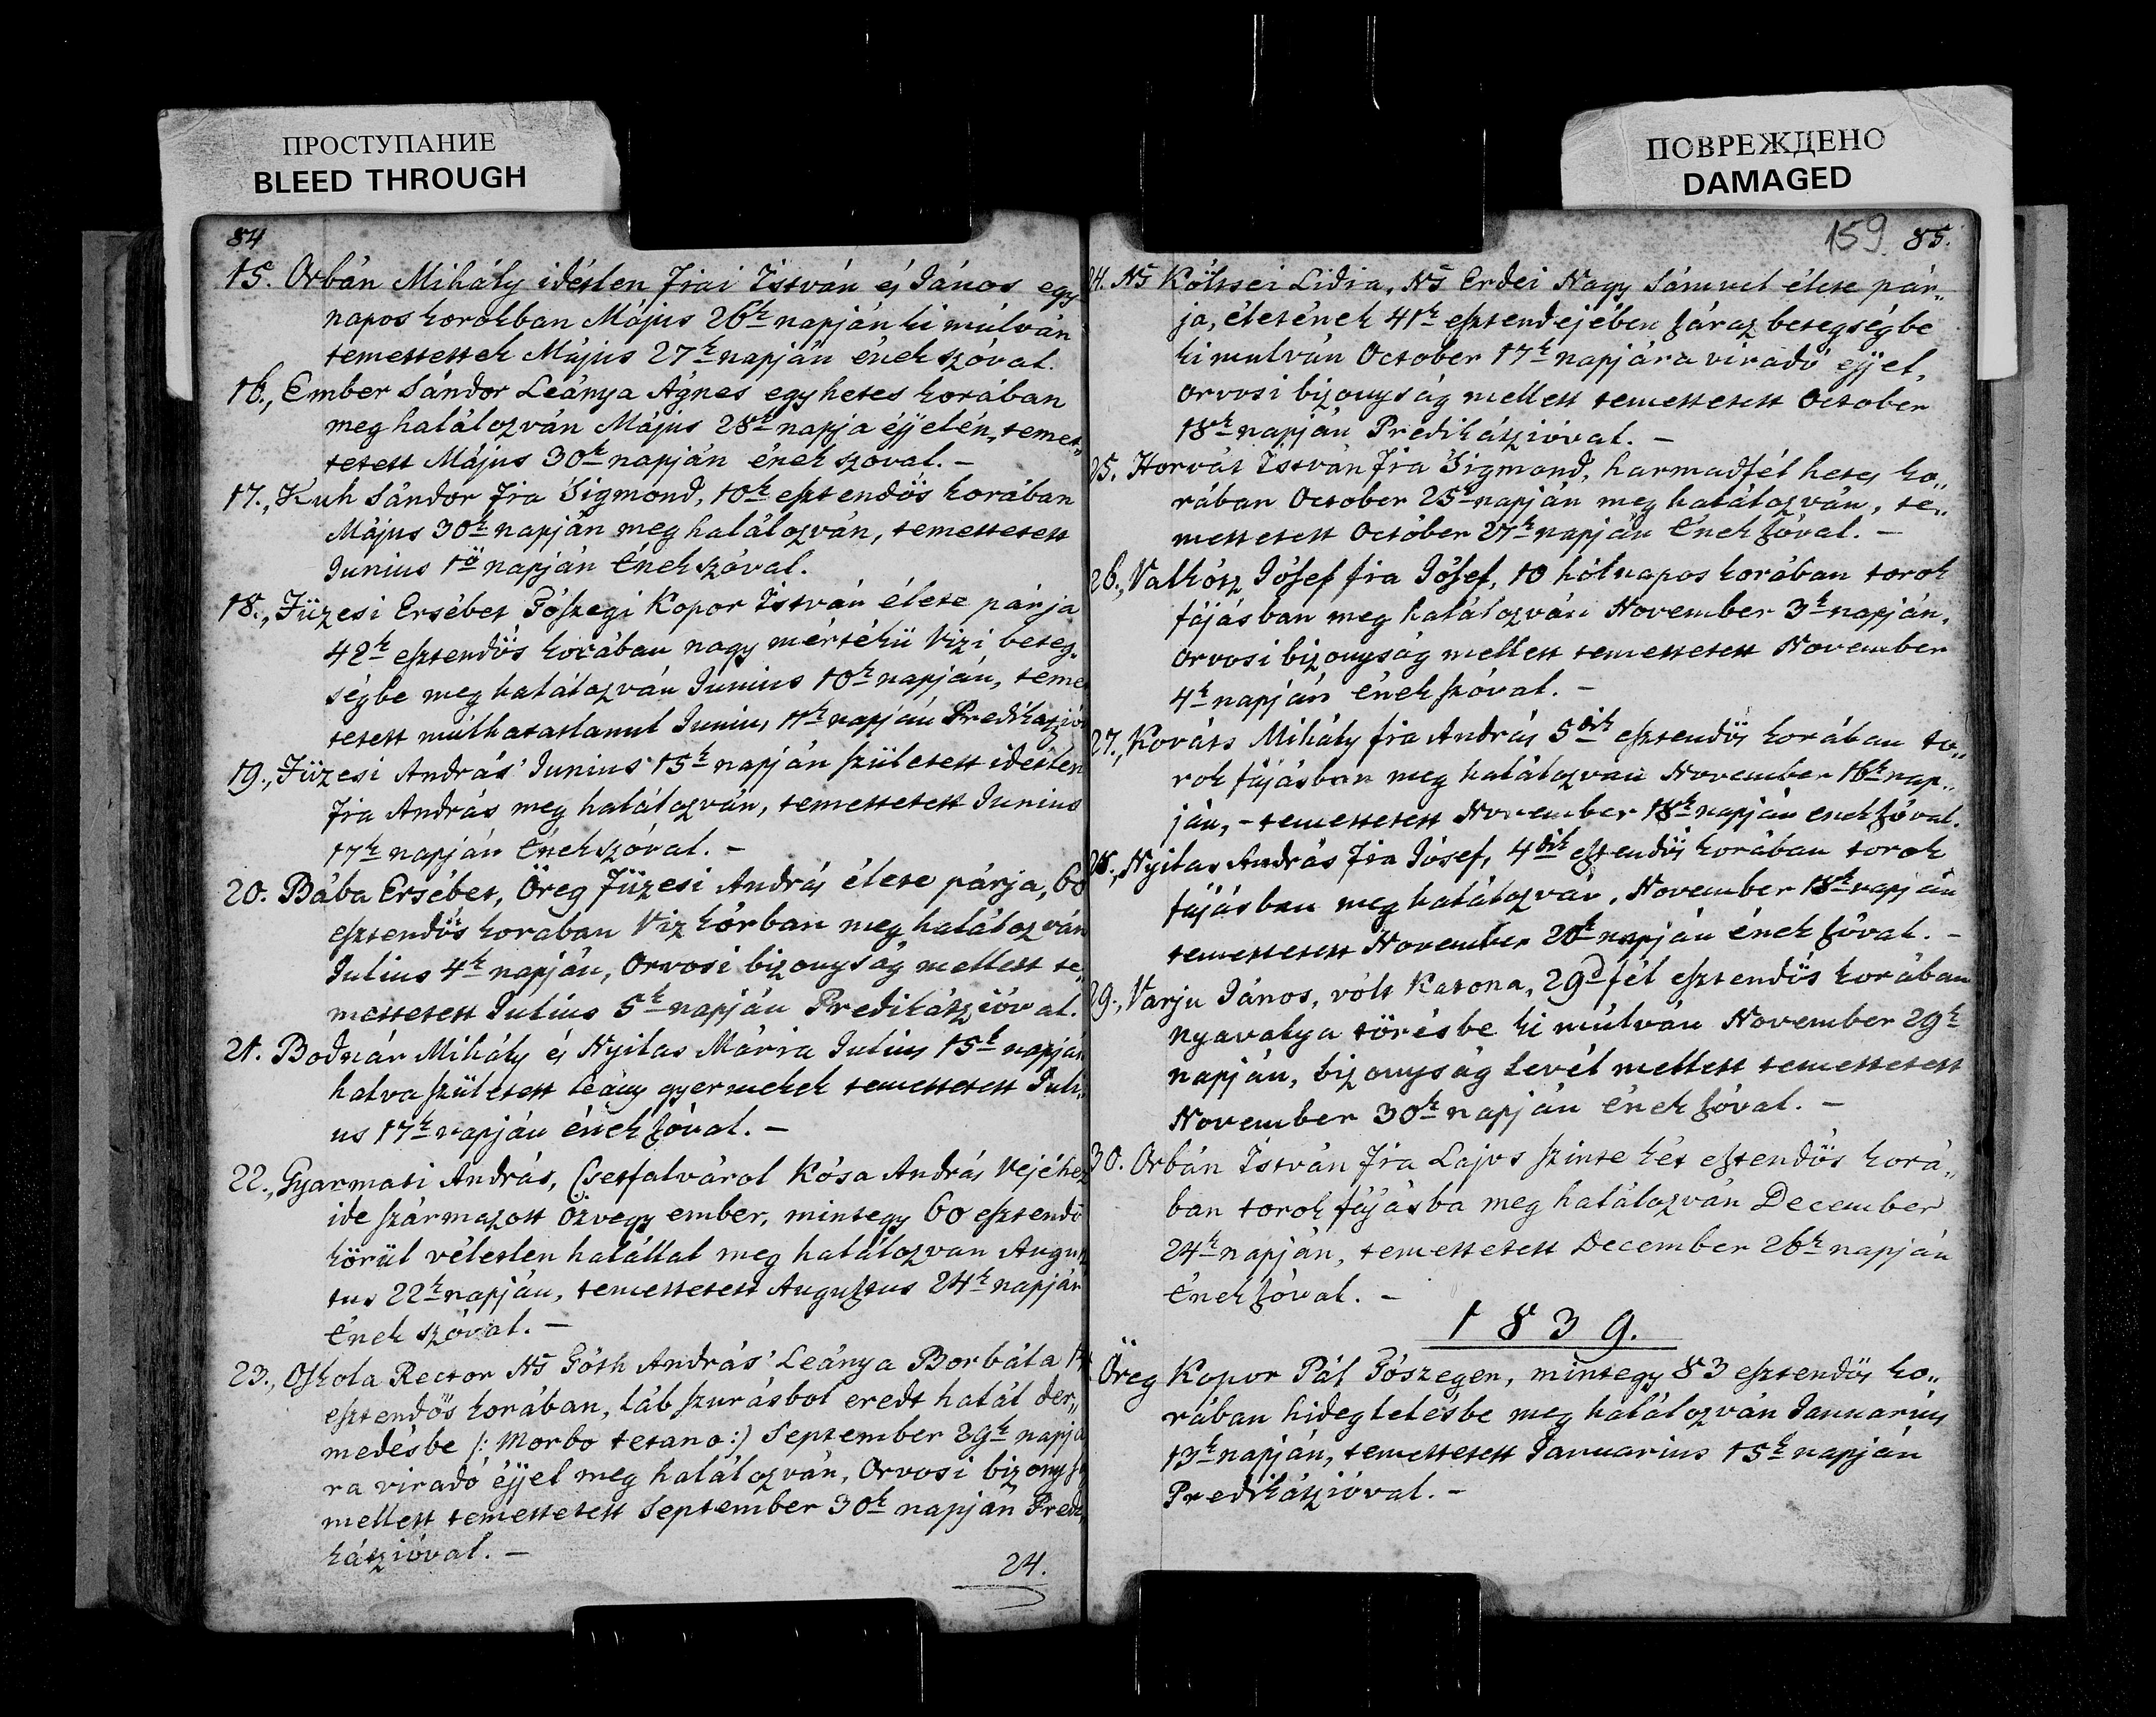 ПРОСТУПАНИЕ
BLEED THROUGH
84
15. Orbán Mihály idétlen Fiai István és János egy
napos korokban Május 26k napján ki múlván
temettettek Május 27k napján ének szóval.
16., Ember Sándor Leánya Ágnes egy hetes korában
meg halálozván Május 28k napja éjjelén, temet„
tetett Május 30k napján ének szoval. –
17., Kuh Sándor Fia Sigmond, 10k esztendős korában
Május 30k napján meg halálozván, temettetett
Junius 1ő napján Énekszóval.
18., Füzesi Ersébet Tószegi Kopor István élete párja
42k esztendős korában nagy mértékü Vizi beteg„
ségbe meg halálozván Junius 10k napján, temet
tetett múlhatatlanul Junius 11k napján Predikátzió
19., Füzesi András' Junius 15k napján született idétlen
Fia András meg halálozván, temettetett Junius
17k napján Énekszóval. –
20. Bába Ersébet, Öreg Füzesi András élete párja, 60
esztendős koraban Viz kórban meg halálozván
Julius 4k napján, Orvosi bizonyság mellett te„
mettetett Julius 5k napján Predikátzióval.
21. Bodnár Mihály és Nyilas Mária Julius 15k napján
halva született leány gyermekek temettetett Juli„
us 17k napján ének szóval. –
22., Gyarmati András, Csetfalvárol Kósa András Vejéhez
ide származott Özvegy ember, mintegy 60 esztendő
körül véletlen halállal meg halálozvan Augus
tus 22k napján, temettetett Augustus 24k napján
Ének szóval. –
23., Oskola Rector Ns Tóth András' Leánya Borbála
esztendős korában, láb szurásbol eredt halál der„
medésbe /: Morbo tetano :/ September 29k napjá
ra viradó éjjel meg halálozván, Orvosi bizonyság
mellett temettetett September 30k napján Predi„
kátzióval. –
24.
ПОВРЕЖДЕНО
DAMAGED
159 85.
24. Ns Költsei Lidia, Ns Erdei Nagy Sámuel élete pár„
ja, életének 41k esztendejében száraz betegségbe
ki mulván October 17k napjára viradó éjjel,
orvosi bizonyság mellett temettetett October
18k napján Predikátzióval. –
25. Horvát István Fia Sigmond, harmadfél hetes ko„
rában October 25k napján meg halálozván, te„
mettetett October 27k napján Énekszóval. –
26., Valkósz Jósef fia Jósef, 10 hólnapos korában torok
fájásban meg halálozván November 3k napján,
orvosi bizonyság mellett temettetett November
4k napján énekszóval. –
27., Kováts Mihály fia András 5dik esztendős korában to„
rok fájásban meg halálozvan November 16k nap„
ján, – temettetett November 18k napján enekszóval.
28., Nyilas András Fia Jósef, 4dik esztendős korában torok
fájásban meg halálozván, November 18k napján
temettetett November 20k napján ének szóval. –
29., Varju János, vólt Katona, 29d fél esztendős korában
nyavalya törésbe ki múlván November 29k
napján, bizonyság levél mellett temettetett
November 30k napján énekszóval. –
30. Orbán István Fia Lajos szinte két esztendős korá„
ban torok fájásba meg halálozván December
24k napján, temettetett December 26k napján
Énekszóval. –
1839.
Öreg Kopor Pál Tószegen, mintegy 83 esztendős ko„
rában hideglelésbe meg halálozván Januarius
13k napján, temettetett Januarius 15k napján
Predikátzióval. –